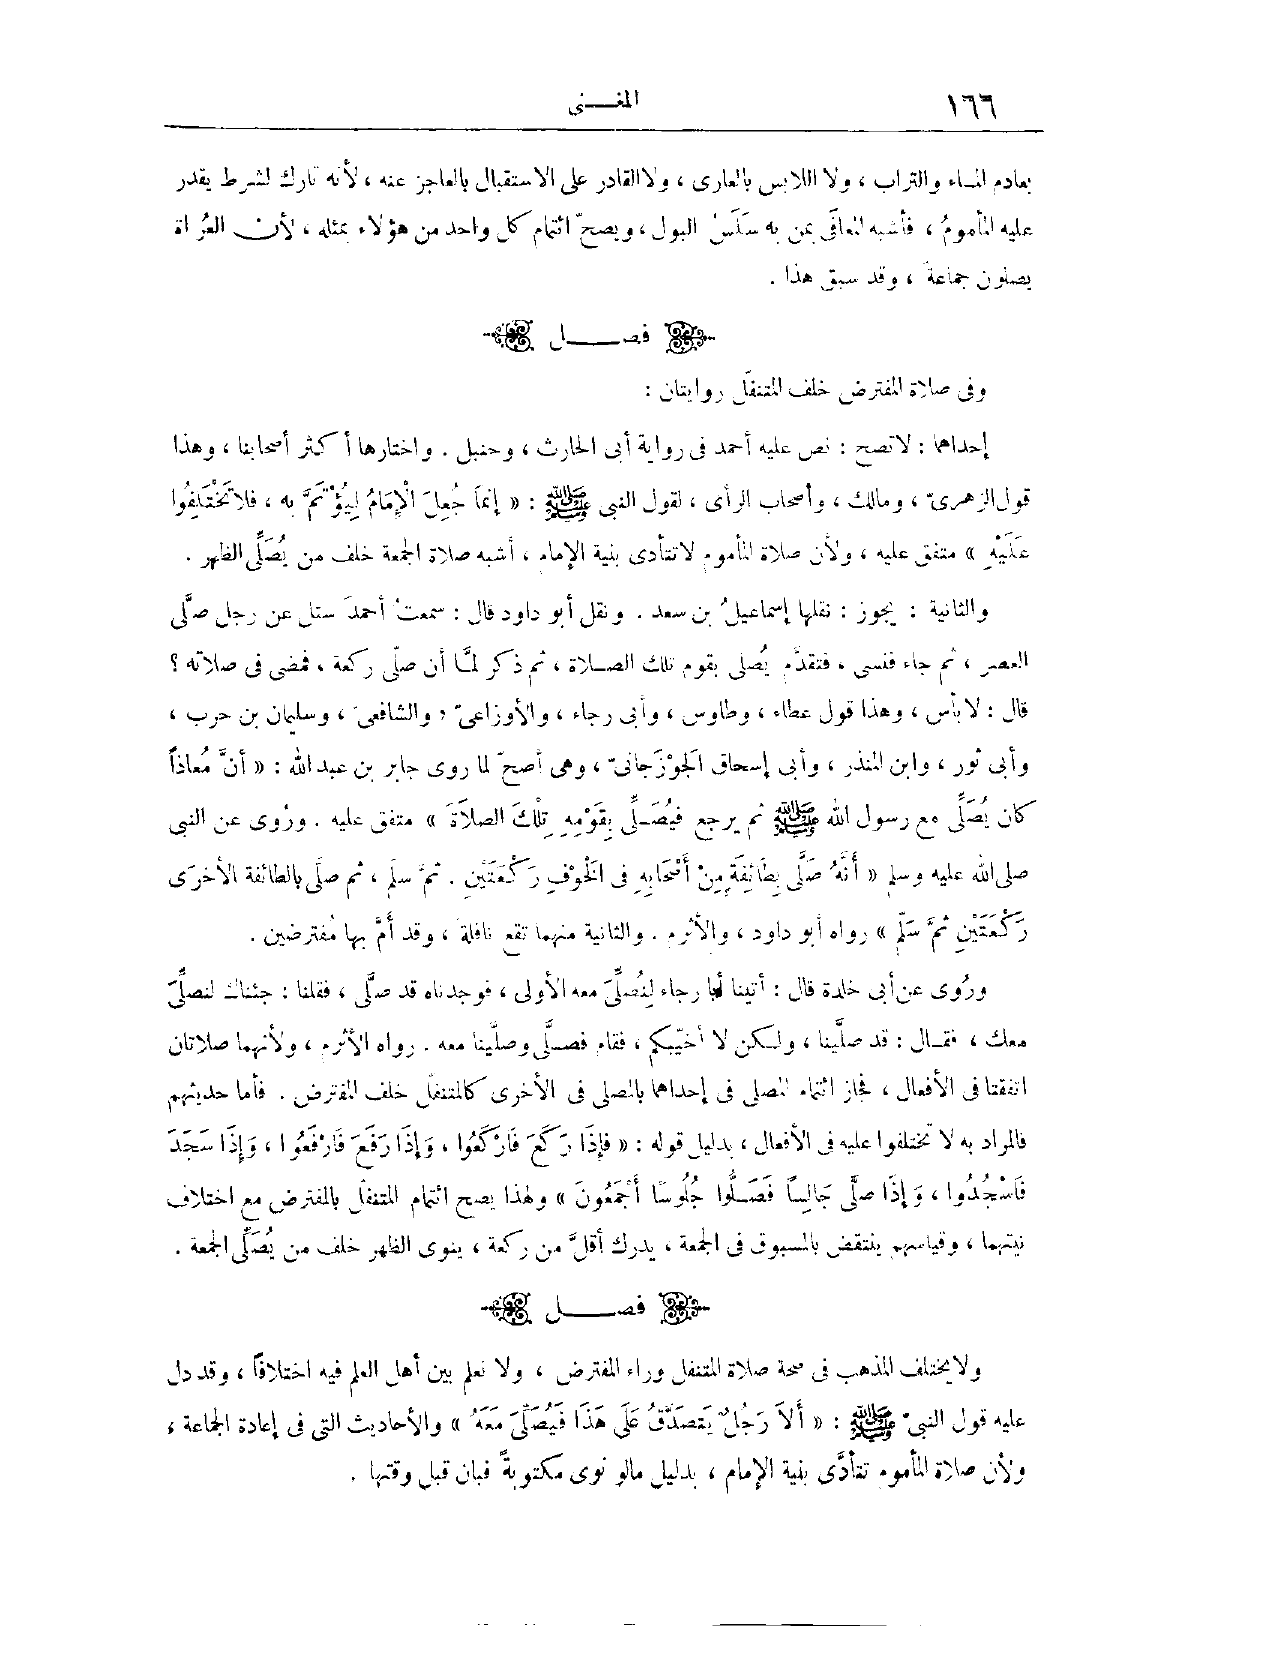 ١٦٦
المغـــنى
بعادم المـاء والتراب ، ولا اللابس بالعارى ، ولا القادر على الاستقبال بالعاجز عنه ، لأنه تارك لشرط يقدر
عليه المأمومُ ، فأشبه المعافَى بمن به سَلَسُ البول ، ويصحّ ائتمام كل واحد من هؤلاء بمثله ، لأن العُراة
يصلون جماعةَ ، وقد سبق هذا .
فصـــــل
وفى صلاة المفترض خلف المتنفّل روايتان :
إحداهما : لاتصح : نص عليه أحمد فى رواية أبى الحارث ، وحنبل . واختارها أكثر أصحابنا ، وهذا
قول الزهرىّ ، ومالك ، وأصحاب الرأى ، لقول النبى ﷺ : « إنَّمَا جُعِلَ الْإِمَامُ لِيُؤْتَمَّ به ، فلا تَخْتَلِفُوا
عَلَيْهِ » متفق عليه ، ولأن صلاة المأموم لاتتأدى بنية الإمام ، أشبه صلاة الجمعة خلف من يُصَلِّى الظهر .
والثانية : يجوز : نقلها إسماعيلُ بن سعد . ونقل أبو داود قال : سمعتُ أحمدَ سئل عن رجل صلَّى
العصر ، ثم جاء فنسى ، فتقدَّم يُصلى بقوم تلك الصـلاة ، ثم ذكر لمَّا أن صلّى ركعة ، فمضى فى صلاته ؟
قال : لا بأس ، وهذا قول عطاء ، وطاوس ، وأبى رجاء ، والأوزاعىّ ، والشافعىّ ، وسليمان بن حرب ،
وأبى ثور ، وابن المنذر ، وأبى إسحاق الجَوْزَجانىّ ، وهى أصحّ لما روى جابر بن عبد الله : « أنَّ مُعاذاً
كان يُصَلِّى مع رسول الله ﷺ ثم يرجع فيُصَـلِّى بِقَوْمِهِ تِلْكَ الصلاَةَ » متفق عليه . ورُوى عن النبى
صلى الله عليه وسلم « أَنَّهُ صَلَّى بِطَائِفَةٍ مِنْ أَصْحَابِهِ فى الْخَوْفِ رَكْعَتَيْنِ . ثمَّ سلَّمَ ، ثم صلَّى بالطائفة الأخرَى
رَكْعَتَيْنِ ثمَّ سَلّم » رواه أبو داود ، والأثرم . والثانية منهما تقع نافلة ، وقد أمَّ بها مُفترضين .
ورُوى عن أبى خلدة قال : أتينا أبا رجاء لِنُصَلِّىَ معه الأولى ، فوجدناه قد صلَّى ، فقلنا : جئناك لنصلِّىَ
معك ، فقـال : قد صلَّينا ، ولـكن لا أخيّبكم ، فقام فصـلَّى وصلَّينا معه . رواه الأثرم ، ولأنهما صلاتان
اتفقتا فى الأفعال ، فجاز ائتمام المصلى فى إحداهما بالمصلى فى الأخرى كالمتنفّل خلف المفترض . فأما حديثهم
فالمراد به لا تختلفوا عليه فى الأفعال ، بدليل قوله : « فإذَا رَكَعَ فَارْكَعُوا ، وَإذَا رَفَعَ فَارْفَعُوا ، وَإذَا سَجَدَ
فَاسْجُدُوا ، وَإذَا صلَّى جَالِسًا فَصَـلُّوا جُلُوسًا أَجْمَعُونَ » ولهذا يصح ائتمام المتنفّل بالمفترض مع اختلاف
نيتهما ، وقياسهم ينتقض بالمسبوق فى الجمعة ، يدرك أقلَّ من ركعة ، ينوى الظهر خلف من يُصَلِّى الجمعة .
فصـــــل
ولا يختلف المذهب فى صحة صلاة المتنفل وراء المفترض ، ولا نعلم بين أهل العلم فيه اختلافاً ، وقد دل
عليه قول النبىّ ﷺ : « أَلاَ رَجُلٌ يَتَصَدَّقُ عَلَى هَذَا فَيُصَلِّىَ مَعَهُ » والأحاديث التى فى إعادة الجماعة ،
ولأن صلاة المأموم تتأدَّى بنية الإمام ، بدليل مالو نوى مكتوبةً فبان قبل وقتها .